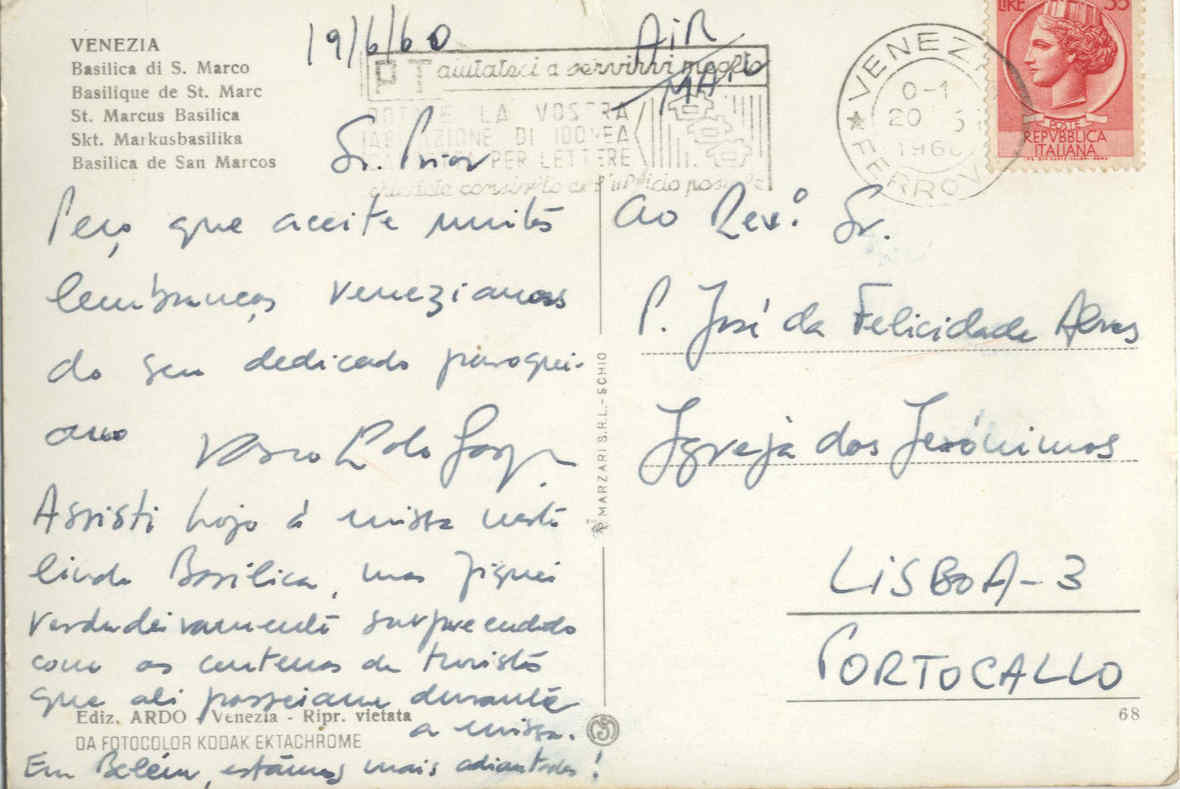 VENEZIA
Basilica di S. Marco
Basilique de St. Marc
St. Marcus Basilica
Skt. Markusbasilika
Basilica de San Marcos
19/6/60
AIR
MAIL
PT aiutateci a servirvi meglio
LA VOSTRA
DI IDONEA
PER LETTERE
VENEZIA
FERROV
0-1
20
196
LIRE 35
POSTE
REPVBBLICA
ITALIANA
Sr. Prior
Peço que aceite muitas
lembranças venezianas
do seu dedicado paroqui-
ano
Vasco
Assisti hoje à missa nesta
linda Basilica, mas fiquei
verdadeiramente surpreendido
com as centenas de turistas
que ali passeiam durante
a missa.
Em Belém, estámos mais adiantados!
Ediz. ARDO Venezia - Ripr. vietata
DA FOTOCOLOR KODAK EKTACHROME
MARZARI S.R.L. - SCHIO
Ao Rev.º Sr.
P. José da Felicidade Alves
Igreja dos Jerónimos
LISBOA-3
PORTOGALLO
68